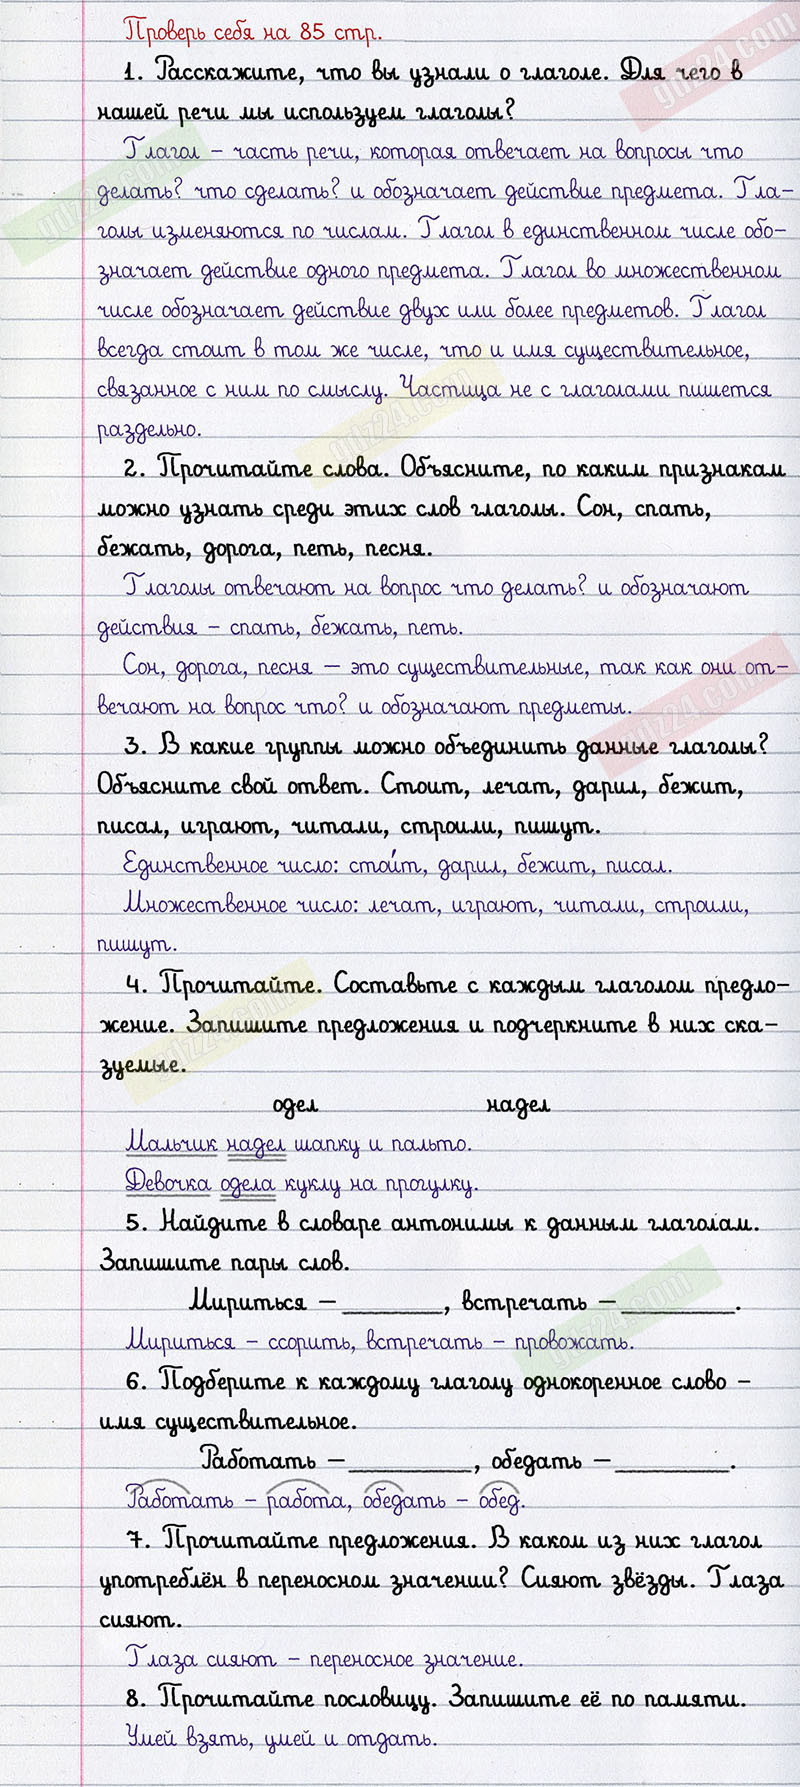 Проверь себя на 85 стр.
1. Расскажите, что вы узнали о глаголе. Для чего в
нашей речи мы используем глаголы?
Глагол – часть речи, которая отвечает на вопросы что
делать? что сделать? и обозначает действие предмета. Гла-
голы изменяются по числам. Глагол в единственном числе обо-
значает действие одного предмета. Глагол во множественном
числе обозначает действие двух или более предметов. Глагол
всегда стоит в том же числе, что и имя существительное,
связанное с ним по смыслу. Частица не с глаголами пишется
раздельно.
2. Прочитайте слова. Объясните, по каким признакам
можно узнать среди этих слов глаголы. Сон, спать,
бежать, дорога, петь, песня.
Глаголы отвечают на вопрос что делать? и обозначают
действия – спать, бежать, петь.
Сон, дорога, песня — это существительные, так как они от-
вечают на вопрос что? и обозначают предметы.
3. В какие группы можно объединить данные глаголы?
Объясните свой ответ. Стоит, лечат, дарил, бежит,
писал, играют, читали, строили, пишут.
Единственное число: стои́т, дарил, бежит, писал.
Множественное число: лечат, играют, читали, строили,
пишут.
4. Прочитайте. Составьте с каждым глаголом предло-
жение. Запишите предложения и подчеркните в них ска-
зуемые.
одел надел
Мальчик надел шапку и пальто.
Девочка одела куклу на прогулку.
5. Найдите в словаре антонимы к данным глаголам.
Запишите пары слов.
Мириться – ________, встречать – _________.
Мириться – ссорить, встречать – провожать.
6. Подберите к каждому глаголу однокоренное слово –
имя существительное.
Работать – __________, обедать – _________.
Работать – работа, обедать – обед.
7. Прочитайте предложения. В каком из них глагол
употреблён в переносном значении? Сияют звёзды. Глаза
сияют.
Глаза сияют – переносное значение.
8. Прочитайте пословицу. Запишите её по памяти.
Умей взять, умей и отдать.
gdz24.com
gdz24.com
gdz24.com
gdz24.com
gdz24.com
gdz24.com